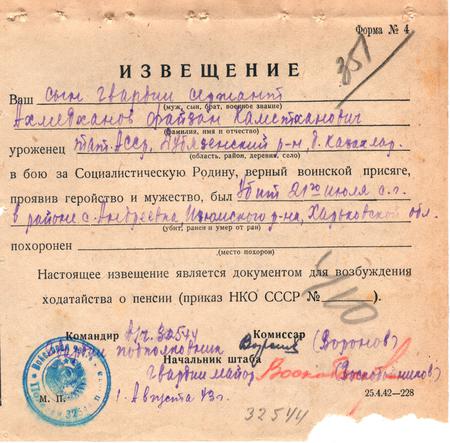 Форма № 4
351
ИЗВЕЩЕНИЕ
Ваш сын гвардии сержант
(муж, сын, брат, военное звание)
Ахмеджанов
(фамилия, имя и отчество)
уроженец Тат. Асср,
(область, район, деревня, село)
в бою за Социалистическую Родину, верный воинской присяге,
проявив геройство и мужество, был Убит 21го июля с.г.
в районе с. Андреевка Изюмского р-на, Харьковской обл.
(убит, ранен и умер от ран)
похоронен
(место похорон)
Настоящее извещение является документом для возбуждения
ходатайства о пенсии (приказ НКО СССР № ).
Командир в/ч. 32544 Комиссар
Гвардии подполковник (Воронов)
Начальник штаба
гвардии майор
М. П. 1. Августа 43г. 25.4.42—228
32544